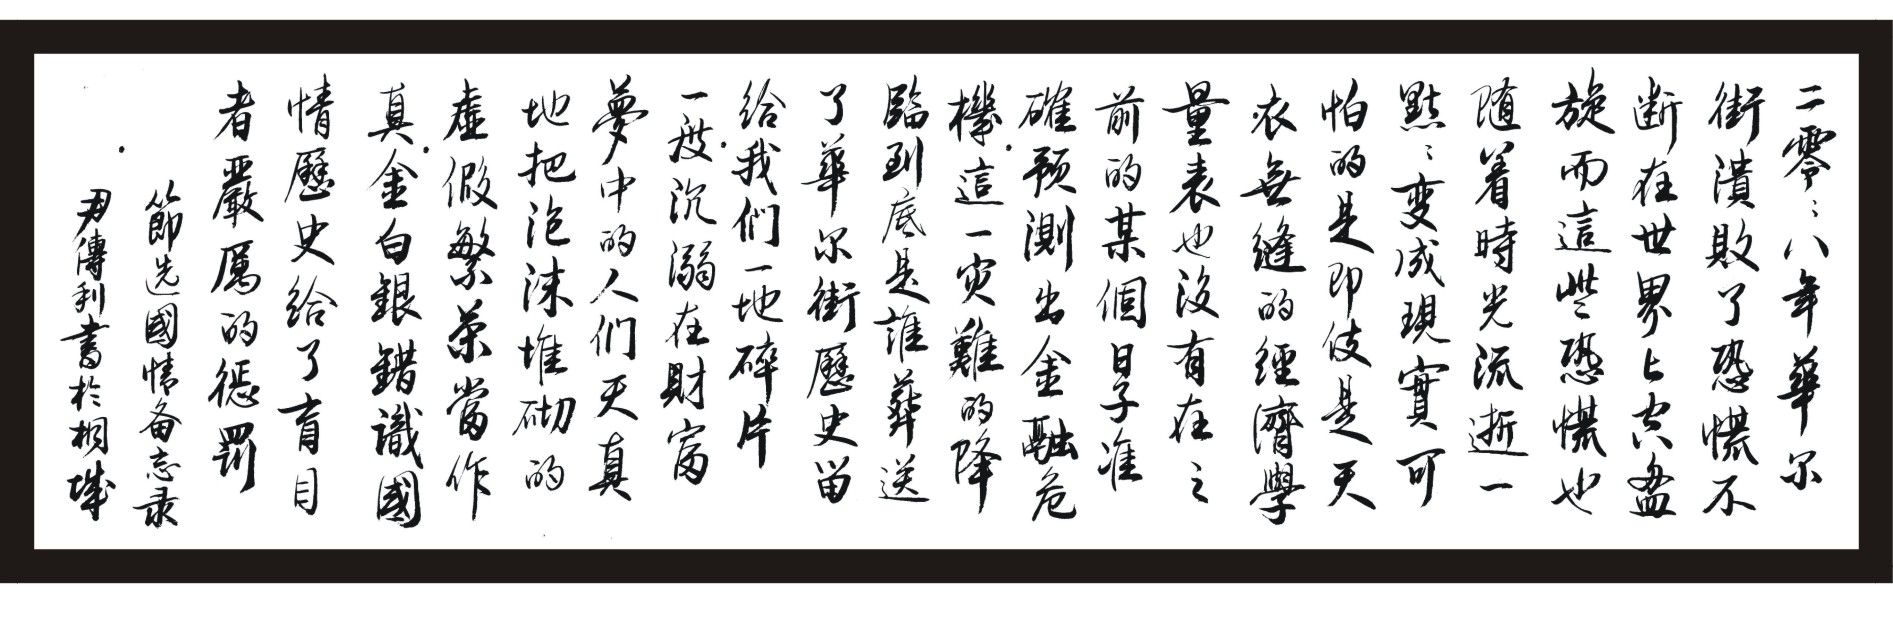 二零〻八年華尔
街潰敗了恐慌不
断在世界上空盘
旋而這些恐慌也
随着時光流逝一
點〻变成現實可
怕的是即使是天
衣無缝的經濟學
量表也没有在之
前的某個日子准
確预測出金融危
機這一灾難的降
臨到底是誰葬送
了華尔街歷史留
给我们一地碎片
一度沉溺在財富
夢中的人们天真
地把泡沫堆砌的
虚假繁荣當作
真金白銀錯識國
情歷史给了盲目
者嚴厲的惩罰
節选國情备忘录
尹傳利書於桐城